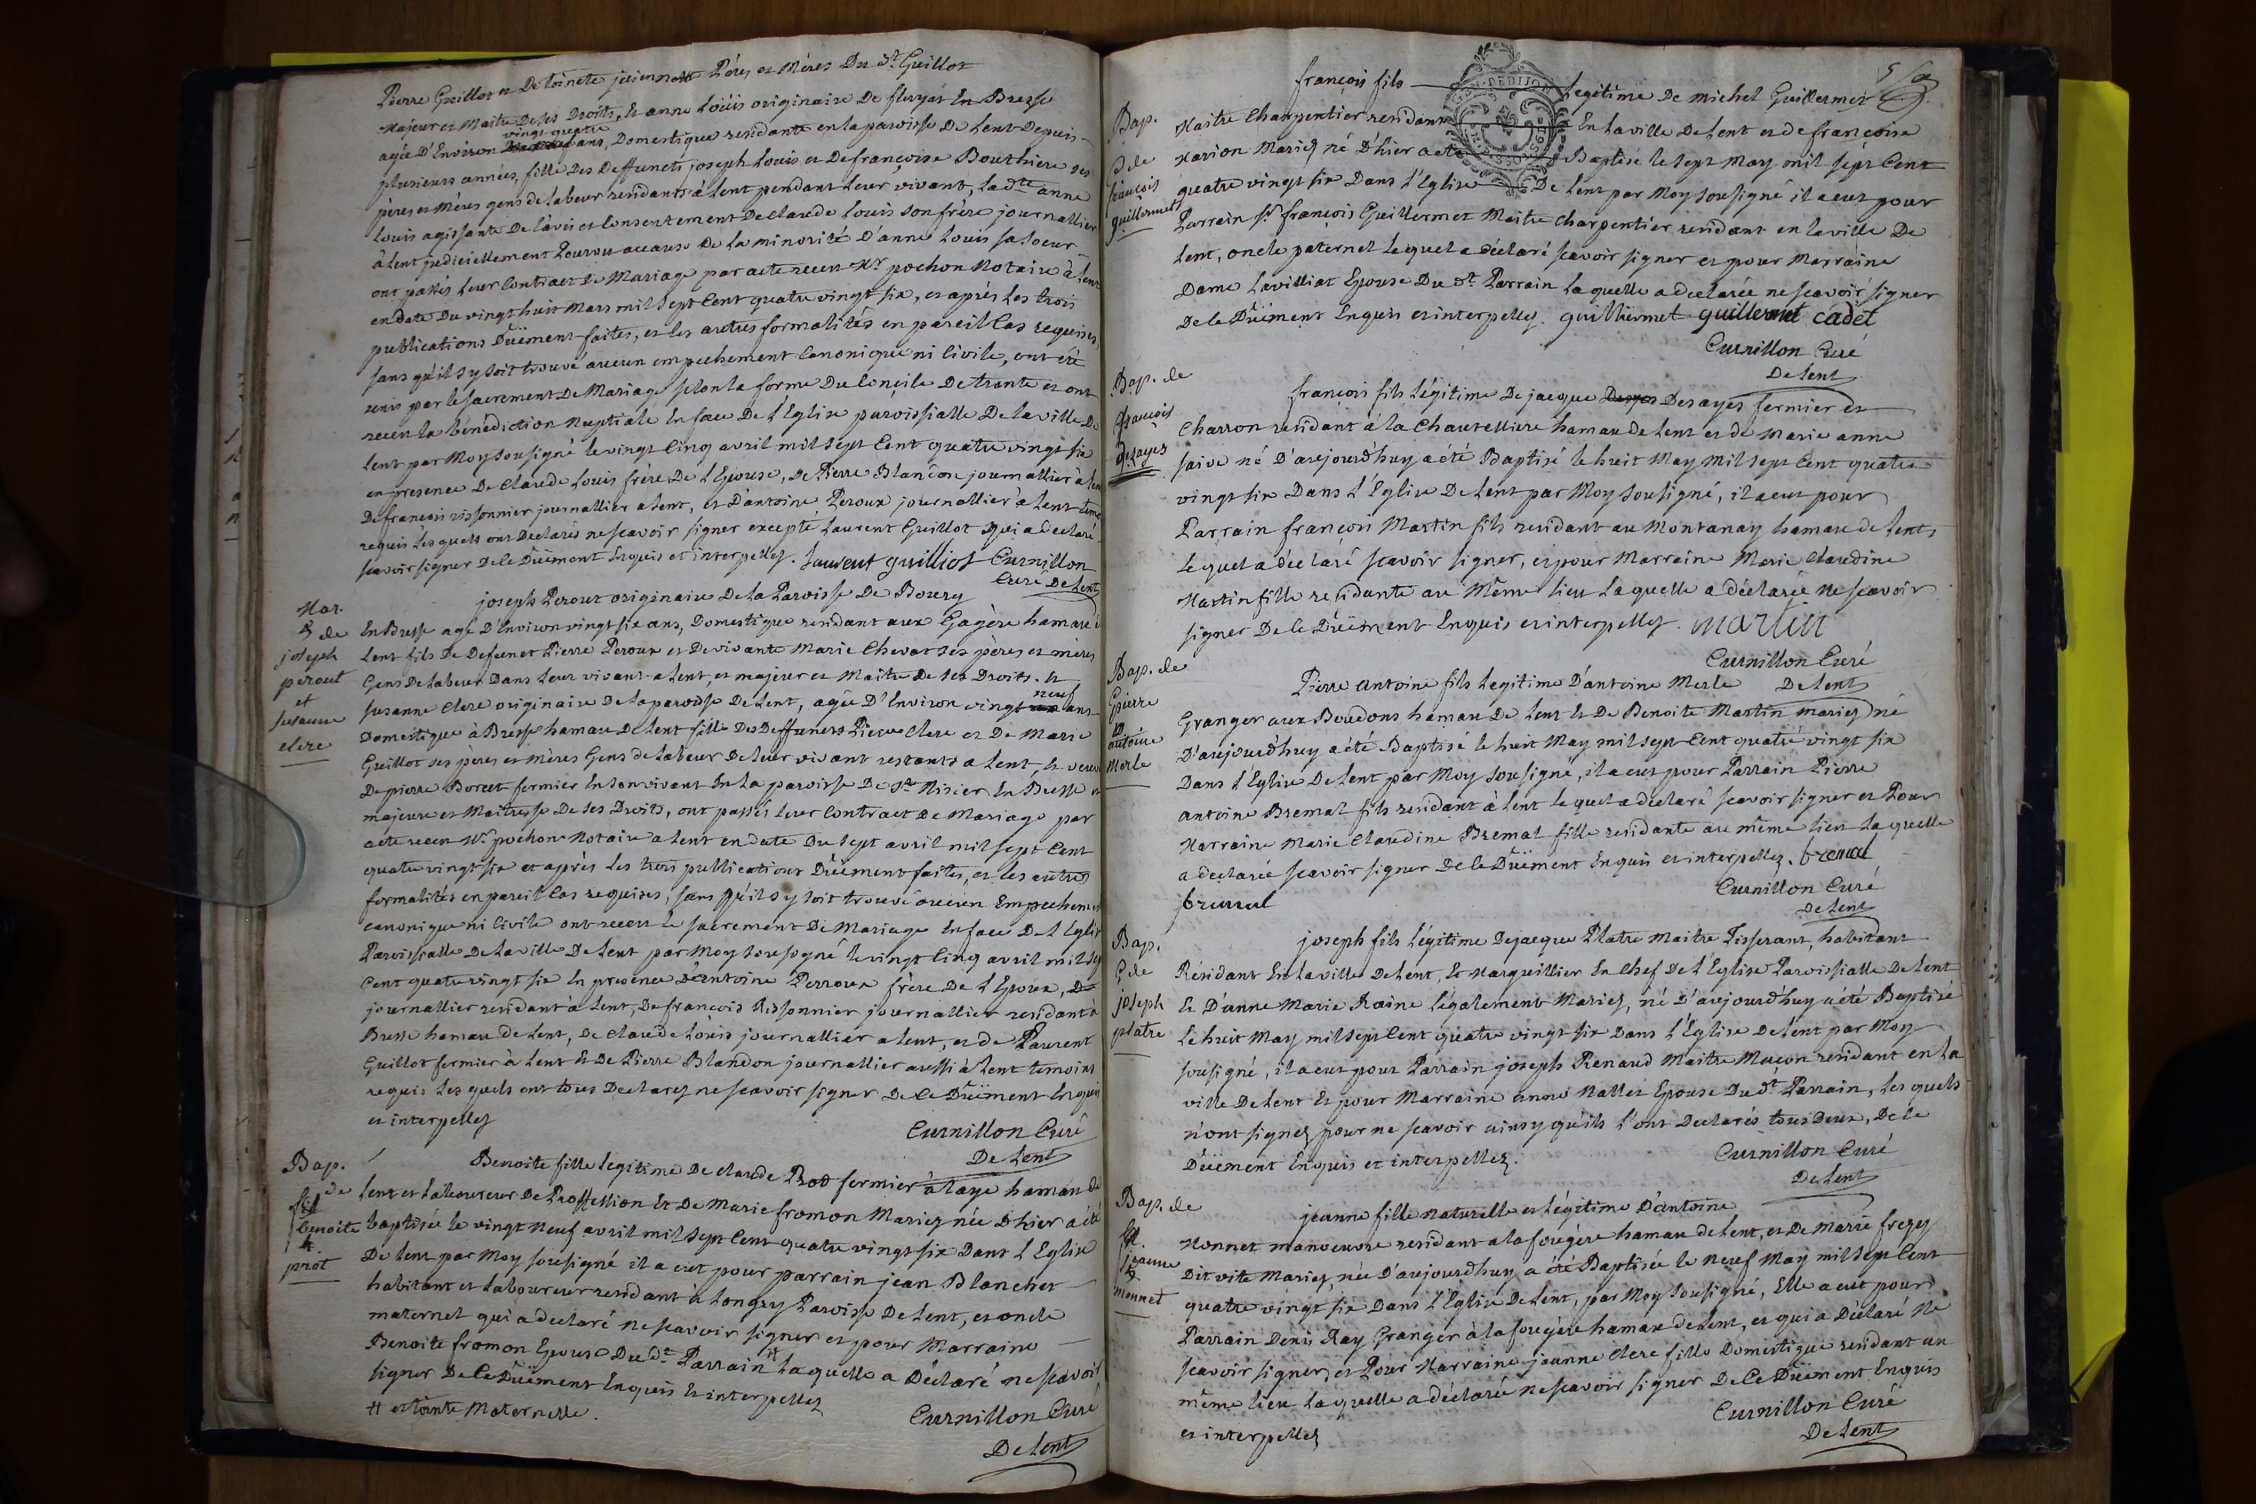 Pierre Guillot et De toinete juiennett Pères et Mères Du dt. Guillot
Majeur et Maitre De ses Droits, Et anne Loüis originaire De fleyriat En Bresse
vingt quatre
agée D'Environ ans, Domestique residante en la paroisse De Lent Depuis
plusieurs années, fille Des Deffuncts joseph Louis et De françoise Bouthiere ses
pères et Mères gens de Labeur residants à Lent pendant Leur vivant, la dte. anne
Louis agissante De l'avis et Consentement De Claude Louis son frère journallier
à Lent judiciellement Pourvu accause De la minorité D'anne Louis sa soeur
ont passés Leur Contract De Mariage par acte recu Mr. pochon Notaire à Lent
en date Du vingt huit Mars mil Sept Cent quatre vingt six, et après Les trois
publications Düement faites, et les autres formalités en pareil Cas requises,
sans qu'il s'y soit trouvé aucun empechement Canonique ni Civile, ont été
unis par le sacrement De Mariage selon la forme Du Concile De trente et ont
recu la bénédiction Nuptiale En face De L'Eglise paroissialle De la ville De
Lent par Moy Sousigné le vingt Cinq avril mil Sept Cent quatre vingt six
en presence De Claude Louis frère De L'Epouse, De Pierre Blandon journallier à Lent
De francois rissonnier journallier a Lent, et D'antoine Peroux journallier à Lent
requis Les quels ont Declarés ne scavoir signer excepté Laurent Guillot qui a declaré
scavoir signer De Ce Düement Enquis et interpellez. Laurent guilliot Curnillon
Curé De Lent
Mar.
de
joseph
perout
et
susanne
clere
joseph Peroux originaire De la Paroisse De Bourg
En Bresse agé D'Environ vingt six ans, Domestique residant aux Gagère hamau
Lent fils De Defunct Pierre Peroux et De vivante Marie Chevat ses pères et mères
Gens De Labeur Dans Leur vivant a Lent, et majeur et Maitre De ses Droits. Et
neuf
susanne Clere originaire De la paroisse De Lent, agée D'Environ vingt ans
Domestique à Bresse hamau De Lent fille Des Deffuncts Pierre Clere et De Marie
Guillot ses pères et mères Gens de Labeur De leur vivant restants a Lent, Et veuve
De pierre Borcet fermier En son vivant En la paroisse De St. Nisier En Bresse et
majeure et Maitresse De ses Droits, ont passés Leur Contract De Mariage par
acte receu Mr. pochon Notaire a Lent en date Du sept avril mil sept Cent
quatre vingt six et après Les trois publications Düement faites, et les autres
formalités en pareil Cas requises, sans qu'il s'y soit trouvé aucun Empechement
canonique ni Civile ont receu Le sacrement De Mariage En face De L'Eglise
Paroissialle De la ville De Lent par Moy Sousigné le vingt Cinq avril mil Sept
Cent quatre vingt six En presence D'antoine Perroux frère De L'Epoux,
journallier residant à Lent, De francois Rissonnier journallier residant à
Bresse hamau de Lent, De Claude Loüis journallier a Lent, et de Laurent
Guillot fermier à Lent Et De Pierre Blandon journallier aussi à Lent temoins
requis Les quels ont tous Declarez ne scavoir signer De Ce Düement Enquis
et interpellez
Curnillon Curé
De Lent
Bap.
de
benoite
prot
Benoite fille Legitime De claude Prod fermier à Laye hamau de
Lent et Laboureur De Proffession Et De Marie fromon Mariez née D'hier a été
baptisée le vingt Neuf avril mil Sept Cent quatre vingt six Dans L'Eglise
De Lent par Moy sousigné il a eut pour parrain jean Blanchet
habitant et Laboureur residant à Longry Paroisse De Lent, et oncle
maternel qui a declaré ne scavoir signer et pour Marraine
Benoite fromon Epouse Du dt. Parrain # Laquelle a Déclaré ne scavoir
signer De Ce Düement Enquis Et interpellez
# et tante Maternelle.
Curnillon Curé
De Lent
Bap.
de
françois
guillermet
françois fils Legitime De Michel Guillermet
Maitre Charpentier residant En la ville De Lent et de françoise
Marion Mariez né D'hier a été Baptisé le Sept May mil sept Cent
quatre vingt six Dans L'Eglise De Lent par Moy sousigné il a eut pour
Parrain Sr. françois Guillermet Maitre Charpentier residant en la ville De
Lent, oncle paternel Lequel a déclaré scavoir signer et pour Marraine
Dame Lavilliat Epouse Du dt. Parrain Laquelle a declarée ne scavoir signer
De Ce Düement Enquis et interpellez. guilliermet guillermet cadet
Curnillon Curé
De Lent
Bap. de
françois
desayes
françois fils Légitime De jacque Desayes fermier et
Charron residant à la Chautelliere hamau de Lent et de Marie anne
saive né D'aujourd'huy a été Baptisé le huit May Mil sept Cent quatre
vingt six Dans L'Eglise De Lent par Moy sousigné, il a eut pour
Parrain françois Martin fils residant au Montanay hamau de Lent,
Lequel a déclaré scavoir signer, et pour Marraine Marie Claudine
Martin fille residante au Même Lieu Laquelle a déclarée Ne scavoir
signer De Ce Düement Enquis et interpellez. martin
Curnillon Curé
De Lent
Bap. de
pierre
antoine
Merle
Pierre antoine fils Legitime D'antoine Merle
Granger aux Boudons hamau De Lent Et De Benoite Martin mariez né
D'aujourd'huy a été Baptisé le huit May mil sept Cent quatre vingt six
Dans L'Eglise De Lent par Moy sousigné, il a eut pour Parrain Pierre
antoine Bremal fils residant à Lent Lequel a déclaré scavoir signer et Pour
Marraine Marie Claudine Bremal fille residante au même Lieu Laquelle
a declarée scavoir signer De Ce Düement Enquis et interpellez. bremal
bremal
Curnillon Curé
De Lent
Bap.
de
joseph
platre
joseph fils Légitime De jacque Platre Maitre Tisserant, habitant
Résidant En la ville De Lent, Et Marguillier En Chef De L'Eglise Paroissialle De Lent
Et D'anne Marie Raine Légalement Mariez, né D'aujourd'huy a été Baptisé
Le huit May mil Sept Cent quatre vingt six Dans L'Eglise De Lent par Moy
sousigné, il a eut pour Parrain joseph Renaud Maitre Maçon residant en la
ville De Lent Et pour Marraine anne Nallet Epouse Du dt. Parrain, Les quels
n'ont signez pour ne scavoir ainsy qu'ils l'ont Declarés tous Deux, De Ce
Düement Enquis et interpellez.
Curnillon Curé
De Lent
Bap. de
jeanne
monnet
jeanne fille naturelle et Légitime D'antoine
Monnet manoeuvre residant a la fougère hamau de Lent, et De Marie frezy
Dit vite Mariez, née D'aujourdhuy a été Baptisée Le Neuf May mil Sept Cent
quatre vingt six Dans L'Eglise De Lent, par Moy Sousigné, Elle a eut pour
Parrain Denis Ray Granger à la fougère hamau de Lent, et qui a Déclaré Ne
scavoir signer, et Pour Marraine jeanne Clere fille Domestique residant au
même Lieu Laquelle a déclarée ne scavoir signer De Ce Düement Enquis
et interpellez
Curnillon Curé
De Lent